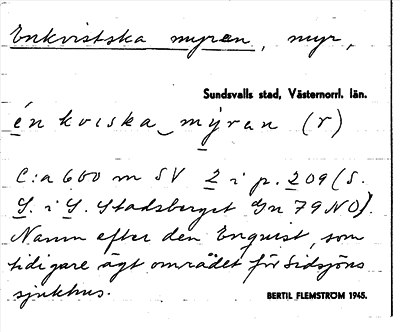 Enkvistska myran, myr,
Sundsvalls stad, Västernorrl. län.
énkviska_mýran (r)
C:a 600 m SV 2 i p. 209 (S.
S. i S. Stadsberget Gn 79 NO).
Namn efter den Enquist, som
tidigare ägt området för Sidsjöns
sjukhus.
BERTIL FLEMSTRÖM 1945.